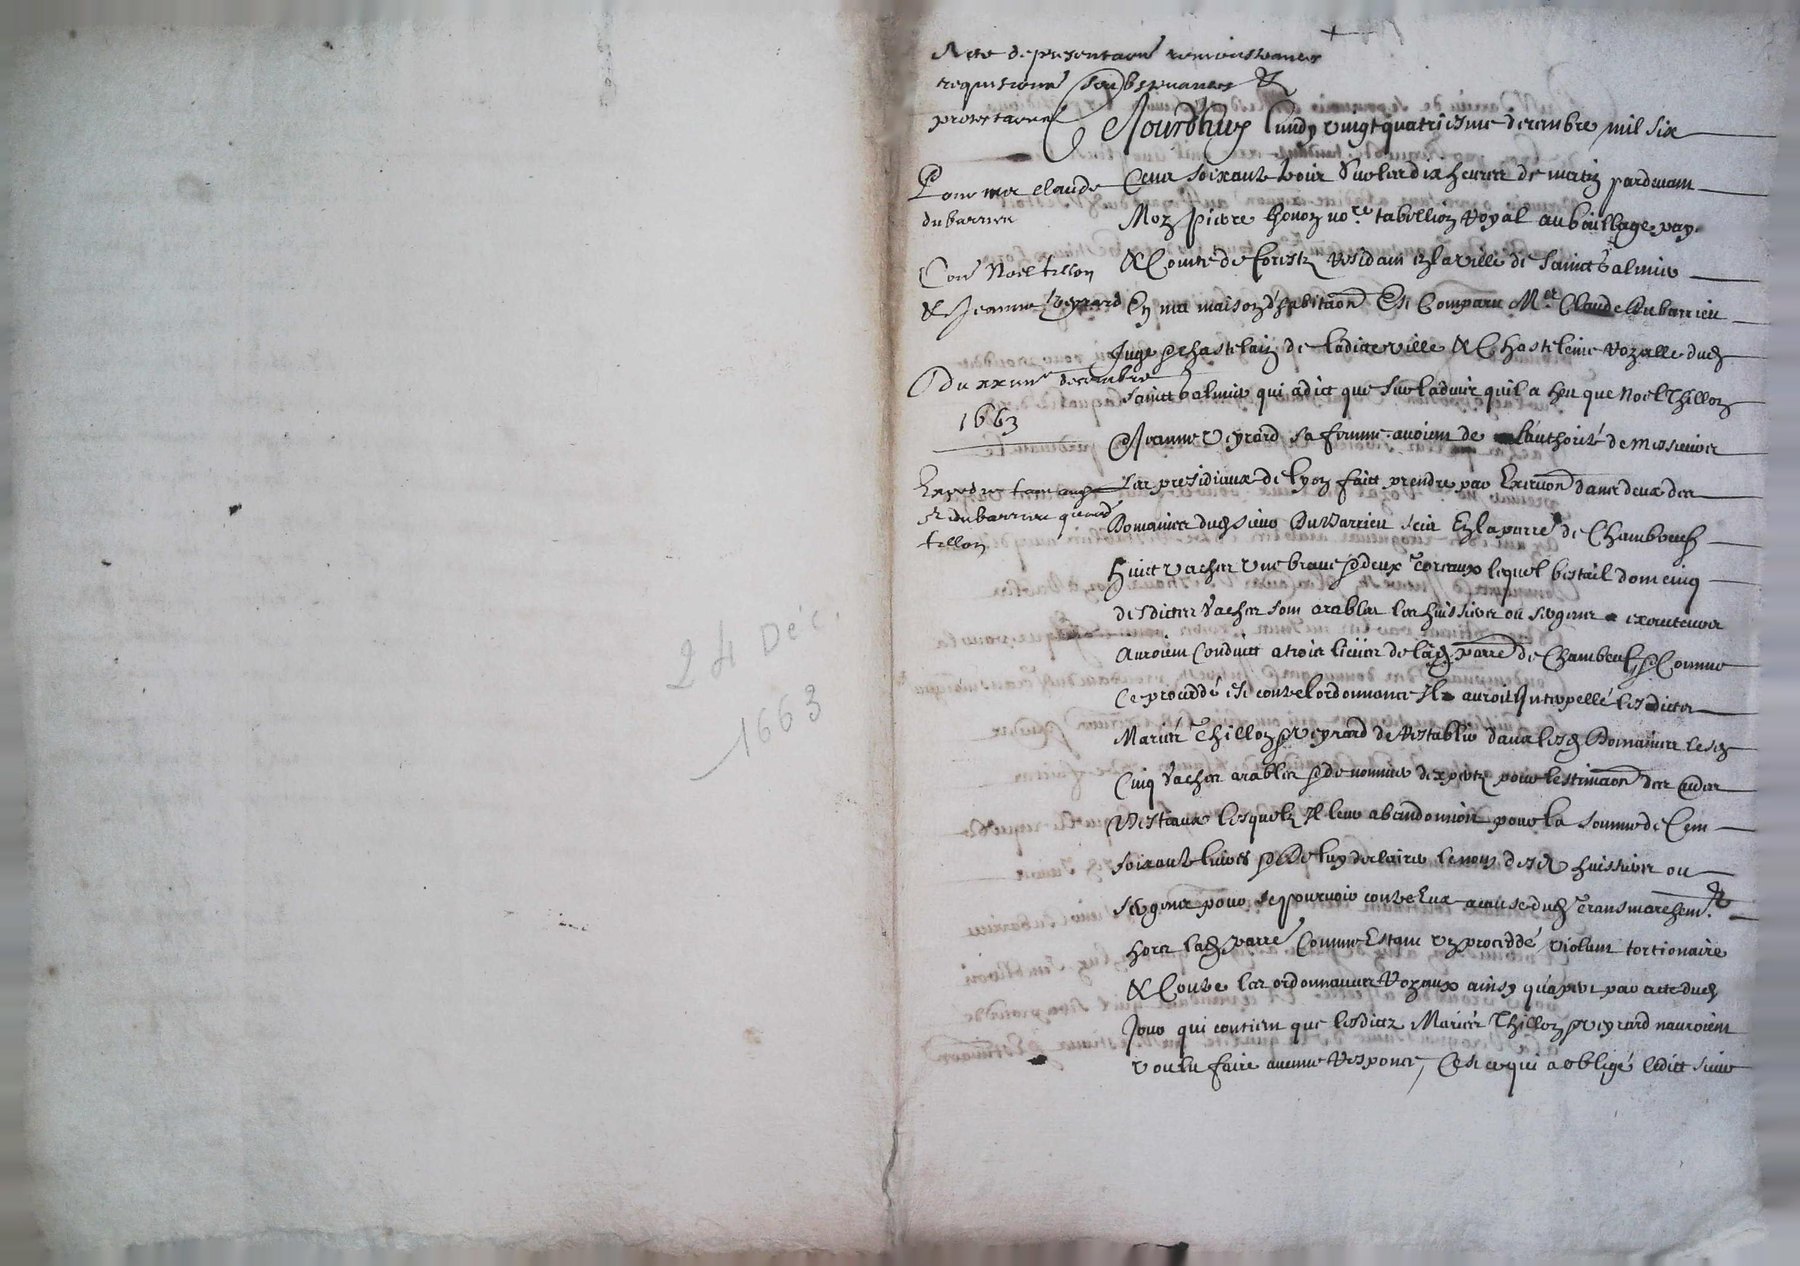 24 Déc.
1663
Acte de presentaōn remonstrances
requisitions &
protestaōns
Pour mre Claude
dubarrieu
Con Noel tillon
& Jeanne Veyrard
Du xxiiiie decembre
1663
Expedié
sr dubarrieu
tillon
Jourdhuy lundy vingtquatriesme decembre mil six
Cens soixante trois sur les dix heures de matin pardevant
Moy pierre no.re tabellion Royal au baillage pays
& Comté de forestz Residant en la ville de sainct galmier
En ma maison d'habitaōn Est Comparu M.re Claude Dubarrieu
Juge & chastelain de ladicte ville & Chastelenie Royalle dud
sainct galmier qui a dict que sur ladvis quil a heu que Noel Thillon
& Jeanne Veyrard sa femme avoient de l'authorité de messieurs
les presidiaux de lyon faict prendre par Execuōn dans deux des
Domaines dud sieur DuBarrieu scis En la parre de Chambeuf
huict vaches une brave & deux Toreaux lequel bestail dont cinq
desdictes vaches sont arables les huissiers ou sergens executeurs
auroient Conduict a trois lieues de lad parre de Chambeuf & Comme
Ce procedde est contre lordonnance Il auroit Interpellé lesdictz
Mariés Thillon & Veyrard de Restablir dans lesd Domaines lesd
Cinq vaches arables & de nommer dexpertz pour lestimaōn des autres
Bestiaux lesquelz Il leur abandonnoit pour la somme de Cent
soixante livres & De luy declairer le nom desd huissiers ou
sergens pour se pourvoir contre Eux a cause dud Transmarchement
hors lad parre Comme Estant un proceddé violant tortionaire
& Contre les ordonnances Royaux ainsy quapert par acte dud
Jour qui contient que lesdictz Mariés Thillon & Veyrard nauroient
voulu faire aucune Responce, Cest ce qui a obligé ledict sieur